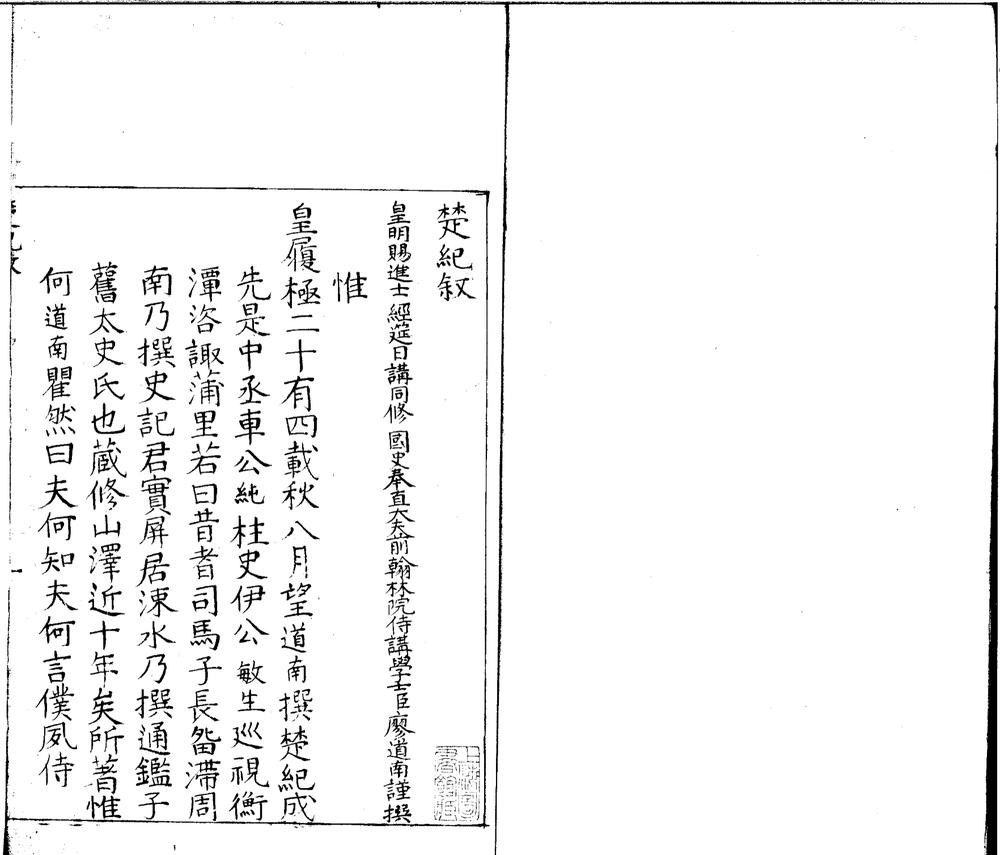 楚紀叙
皇明賜進士經筵日講同修國史奉直大夫前翰林院侍講學士臣廖道南謹撰
惟
皇履極二十有四載秋八月望道南撰楚紀成
先是中丞車公純柱史伊公敏生廵視衡
潭咨諏蒲里若曰昔者司馬子長畱滯周
南乃撰史記君實屏居涑水乃撰通鑑子
舊太史氏也蔵修山澤近十年矣所著惟
何道南瞿然曰夫何知夫何言僕夙侍
一